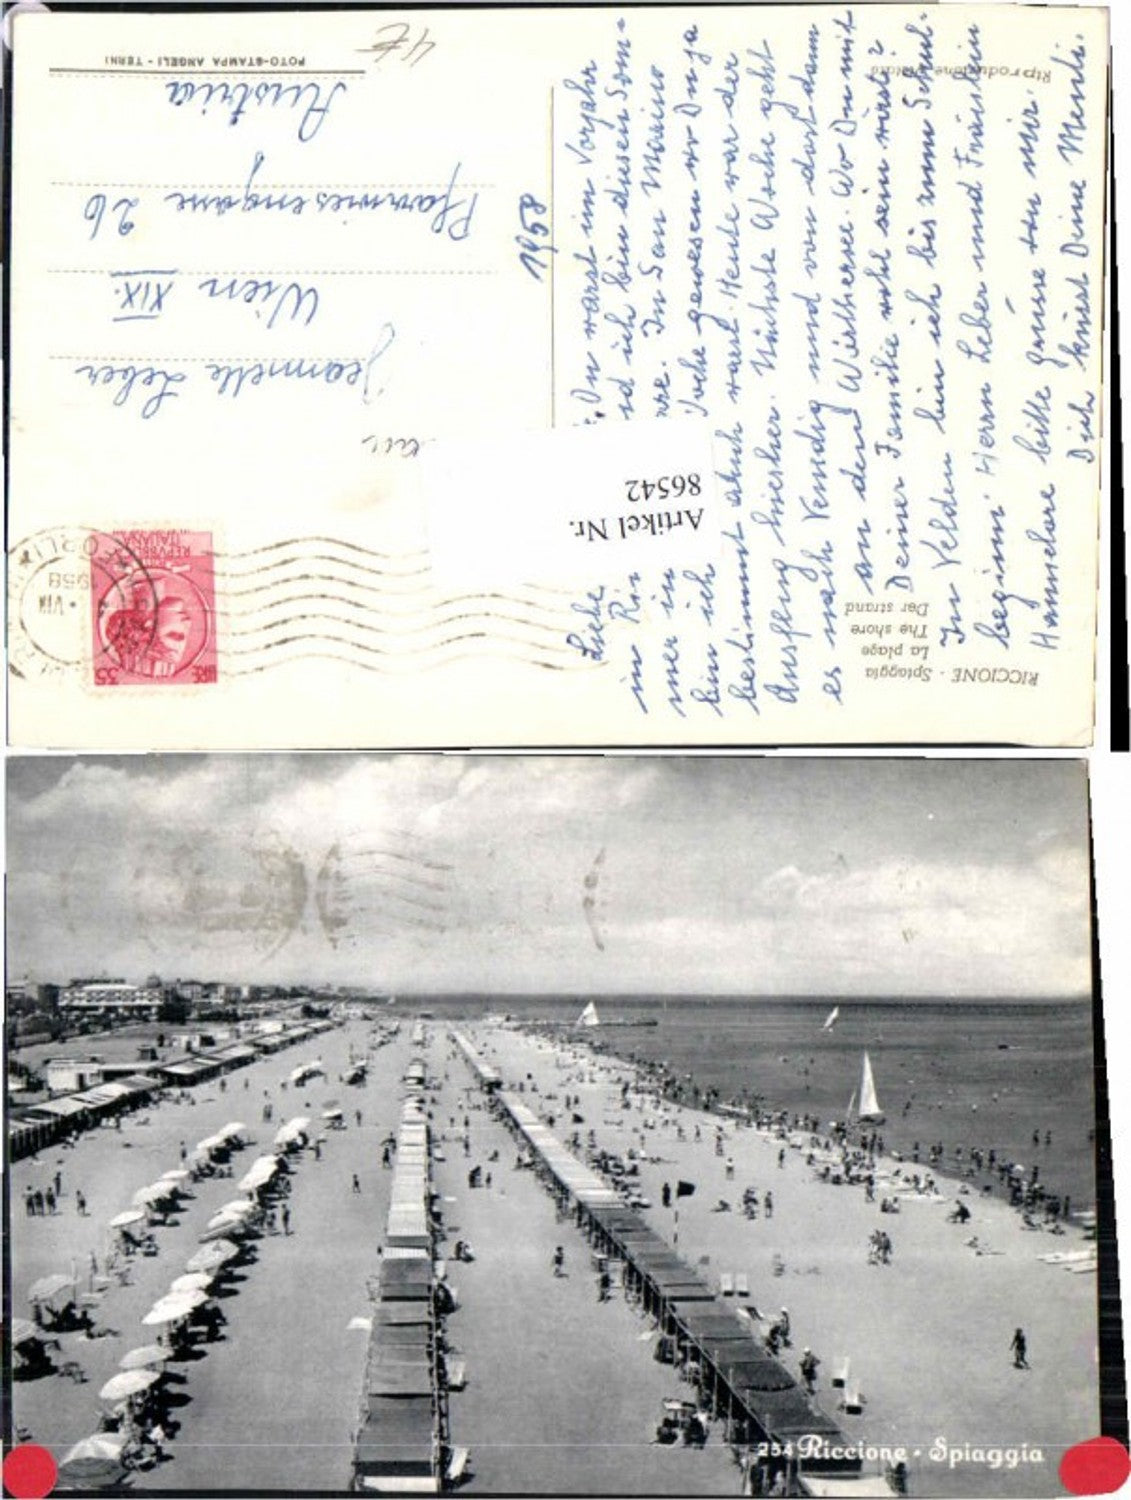 RICCIONE - Spiaggia
La plage
The shore
Der strand
Riproduzione
FOTO-STAMPA ANGELI - TERNI
4€
1958
Jeannette Leber
Wien XIX.
Pfarrwiesengasse 26
Austria
LIRE 35
REPVBBLICA
ITALIANA
Artikel Nr.
86542
Liebe Du warst im Vorjahr
in Ric und ich bin diesen Som-
mer in In San Marino
bin ich Woche gewesen wo Du ja
bestimmt auch warst. Heute war der
Ausflug hierher. Nächste Woche geht
es nach Venedig und von dort dann
an den Wörthersee. Wo Du mit
Deiner Familie wohl sein wirst?
In Velden bin ich bis zum Schul-
beginn. Herrn Leber und Fräulein
Hannelore bitte grüsse von mir.
Dich küsst Deine
254 Riccione - Spiaggia